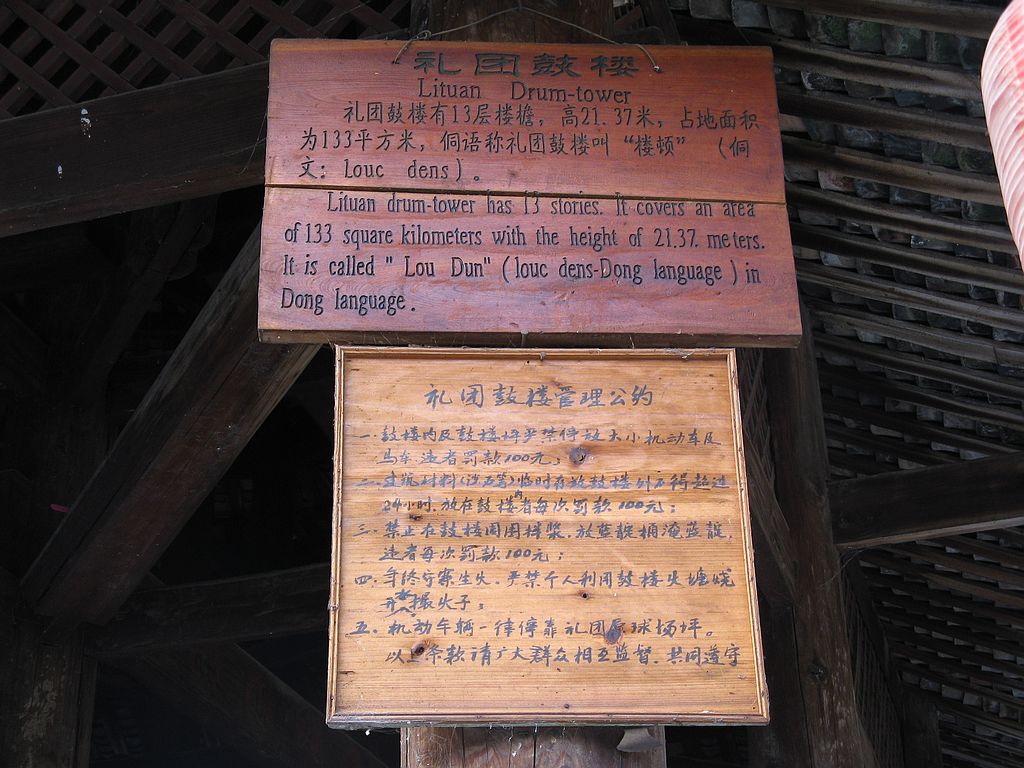 礼团鼓楼
Lituan Drum-tower
礼团鼓楼有13层楼檐，高21.37米，占地面积
为133平方米，侗语称礼团鼓楼叫“楼顿”（侗
文：louc dens）。
Lituan drum-tower has 13 stories. It covers an area
of 133 square kilometers with the height of 21.37. meters.
It is called " Lou Dun" ( louc dens-Dong language ) in
Dong language.
礼团鼓楼管理公约
一. 鼓楼内及鼓楼坪严禁停放大小机动车及
马车. 违者罚款100元；
二. 建筑材料(沙石等)临时存放鼓楼外不得超过
24小时. 放在鼓楼内者每次罚款100元；
三. 禁止在鼓楼周围 放蓝靛桶淹蓝靛,
违者每次罚款100元；
四. 年终守寨生火. 严禁个人利用鼓楼火塘烧
火子；
五. 机动车辆一律停靠礼团 球场坪。
以上条款请广大群众相互监督. 共同遵守